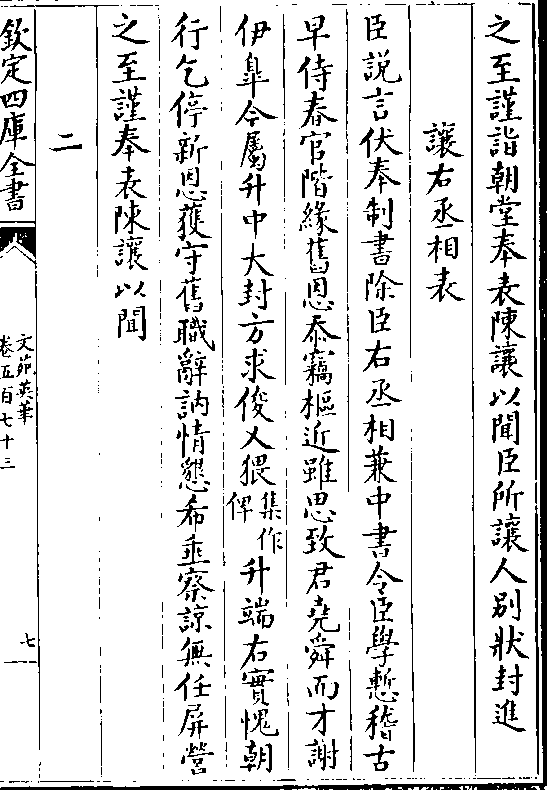 之至謹詣朝堂奉表陳讓以聞臣所讓人别狀封進
讓右丞相表
臣説言伏奉制書除臣右丞相兼中書令臣學慙稽古
早侍春官階緣舊恩忝竊樞近雖思致君堯舜而才謝
伊臯今屬升中大封方求俊乂猥集作俾升端右實愧朝
行乞停新恩獲守舊職辭訥情懇希垂察諒無任屏營
之至謹奉表陳讓以聞
二
欽定四庫全書
文苑英華
卷五百七十三
七